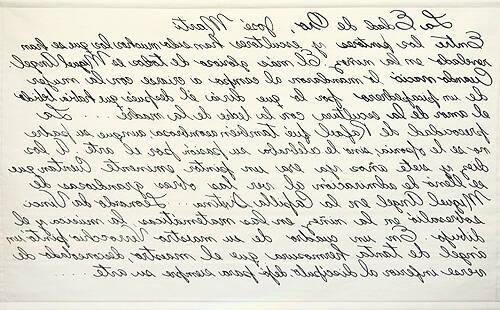 La Edad de Oro, José Martí
Entre los pintores y escultores han sido muchos los que se han
revelado en la niñez. El mas glorioso de todos es Miguel Angel.
Cuando nació lo mandaron al campo a criarse con la mujer
de un picapedrero por lo que decia él despues que habia bebido
el amor de la escultura con la leche de la madre. .... La
precocidad de Rafael fue también asombrosa, aunque su padre
no se le oponia, sino le celebraba su pasión por el arte. A los
diez y siete años ya era pintor eminente. Cuentan que
se llenó de admiración al ver las obras grandiosas de
Miguel Angel en la Capilla Sixtina .... Leonardo da Vinci
sobresalió en la niñez en las matemáticas, la música y el
dibujo. En un cuadro de su maestro Verrocchio pintó un
angel de tanta hermosura que el maestro desconsolado de
verse inferior al discípulo dejó para siempre su arte .....